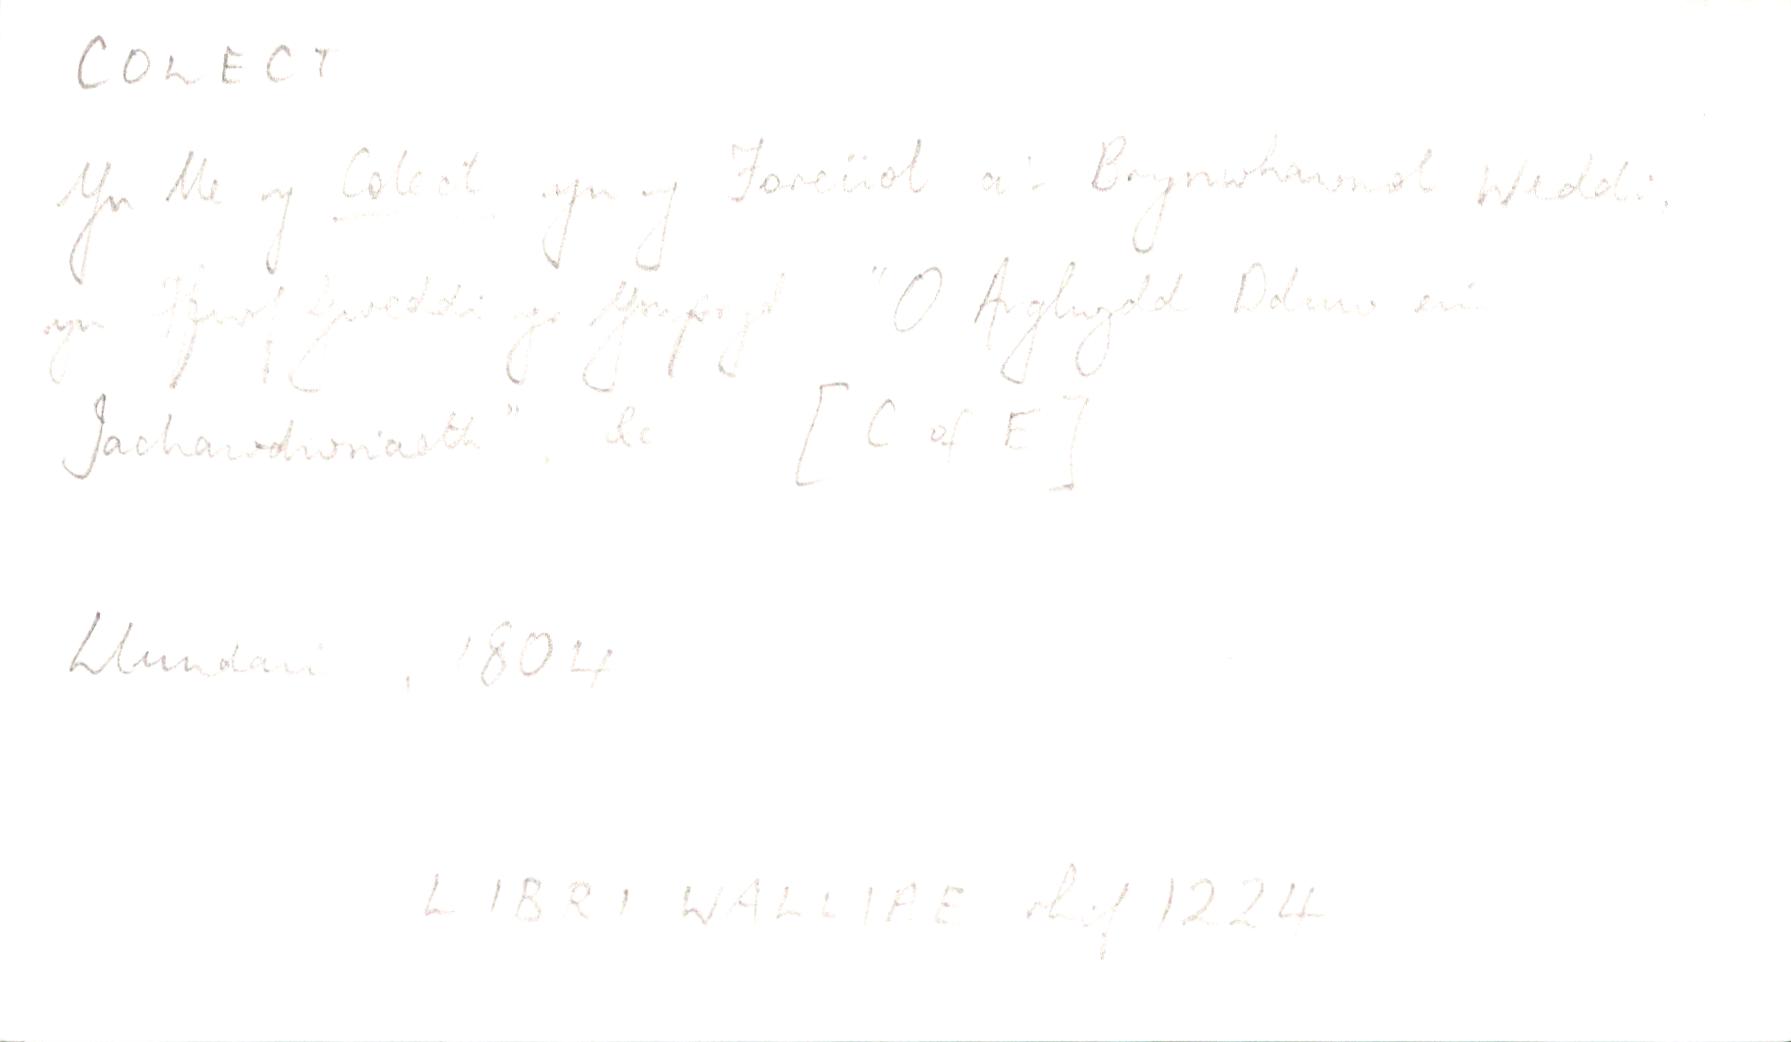 COLECT
Yn lle y Colect yn y Foreüol a'r Brynwhawnol Weddi,
yn Ffurf Gweddi yr Ympryd "O Arglwydd Dduw ein
Jachawdwriaeth", &c [C of E]
Llundain, 1804
LIBRI WALLIAE rhif 1224